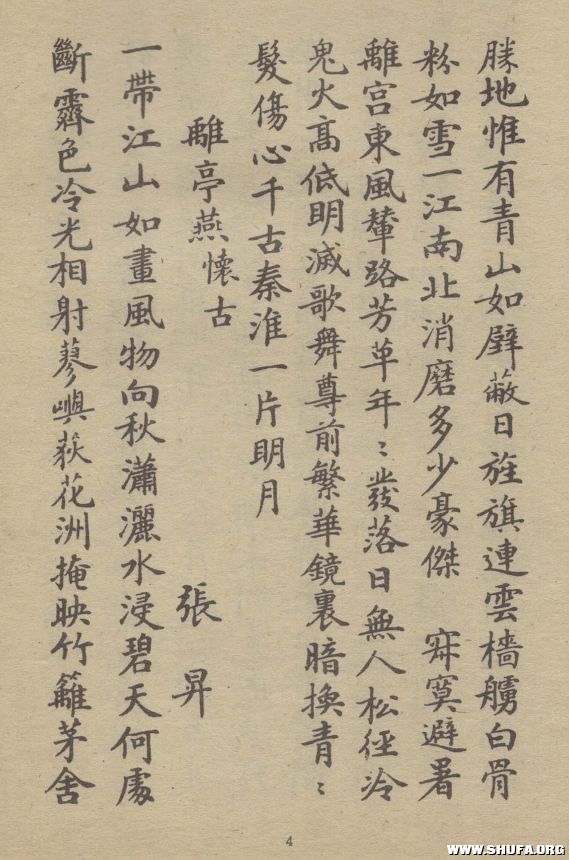 勝地惟有青山如壁蔽日旌旗連雲檣艣白骨
粉如雪一江南北消磨多少豪傑　寂寞避暑
離宮東風輦路芳草年〻發落日無人松徑冷
鬼火高低明滅歌舞尊前繁華鏡裏暗換青〻
髮傷心千古秦淮一片明月
離亭燕懷古
張昇
一帶江山如畫風物向秋瀟灑水浸碧天何處
斷霽色冷光相射蓼嶼荻花洲掩映竹籬茅舍
4
WWW.SHUFA.ORG